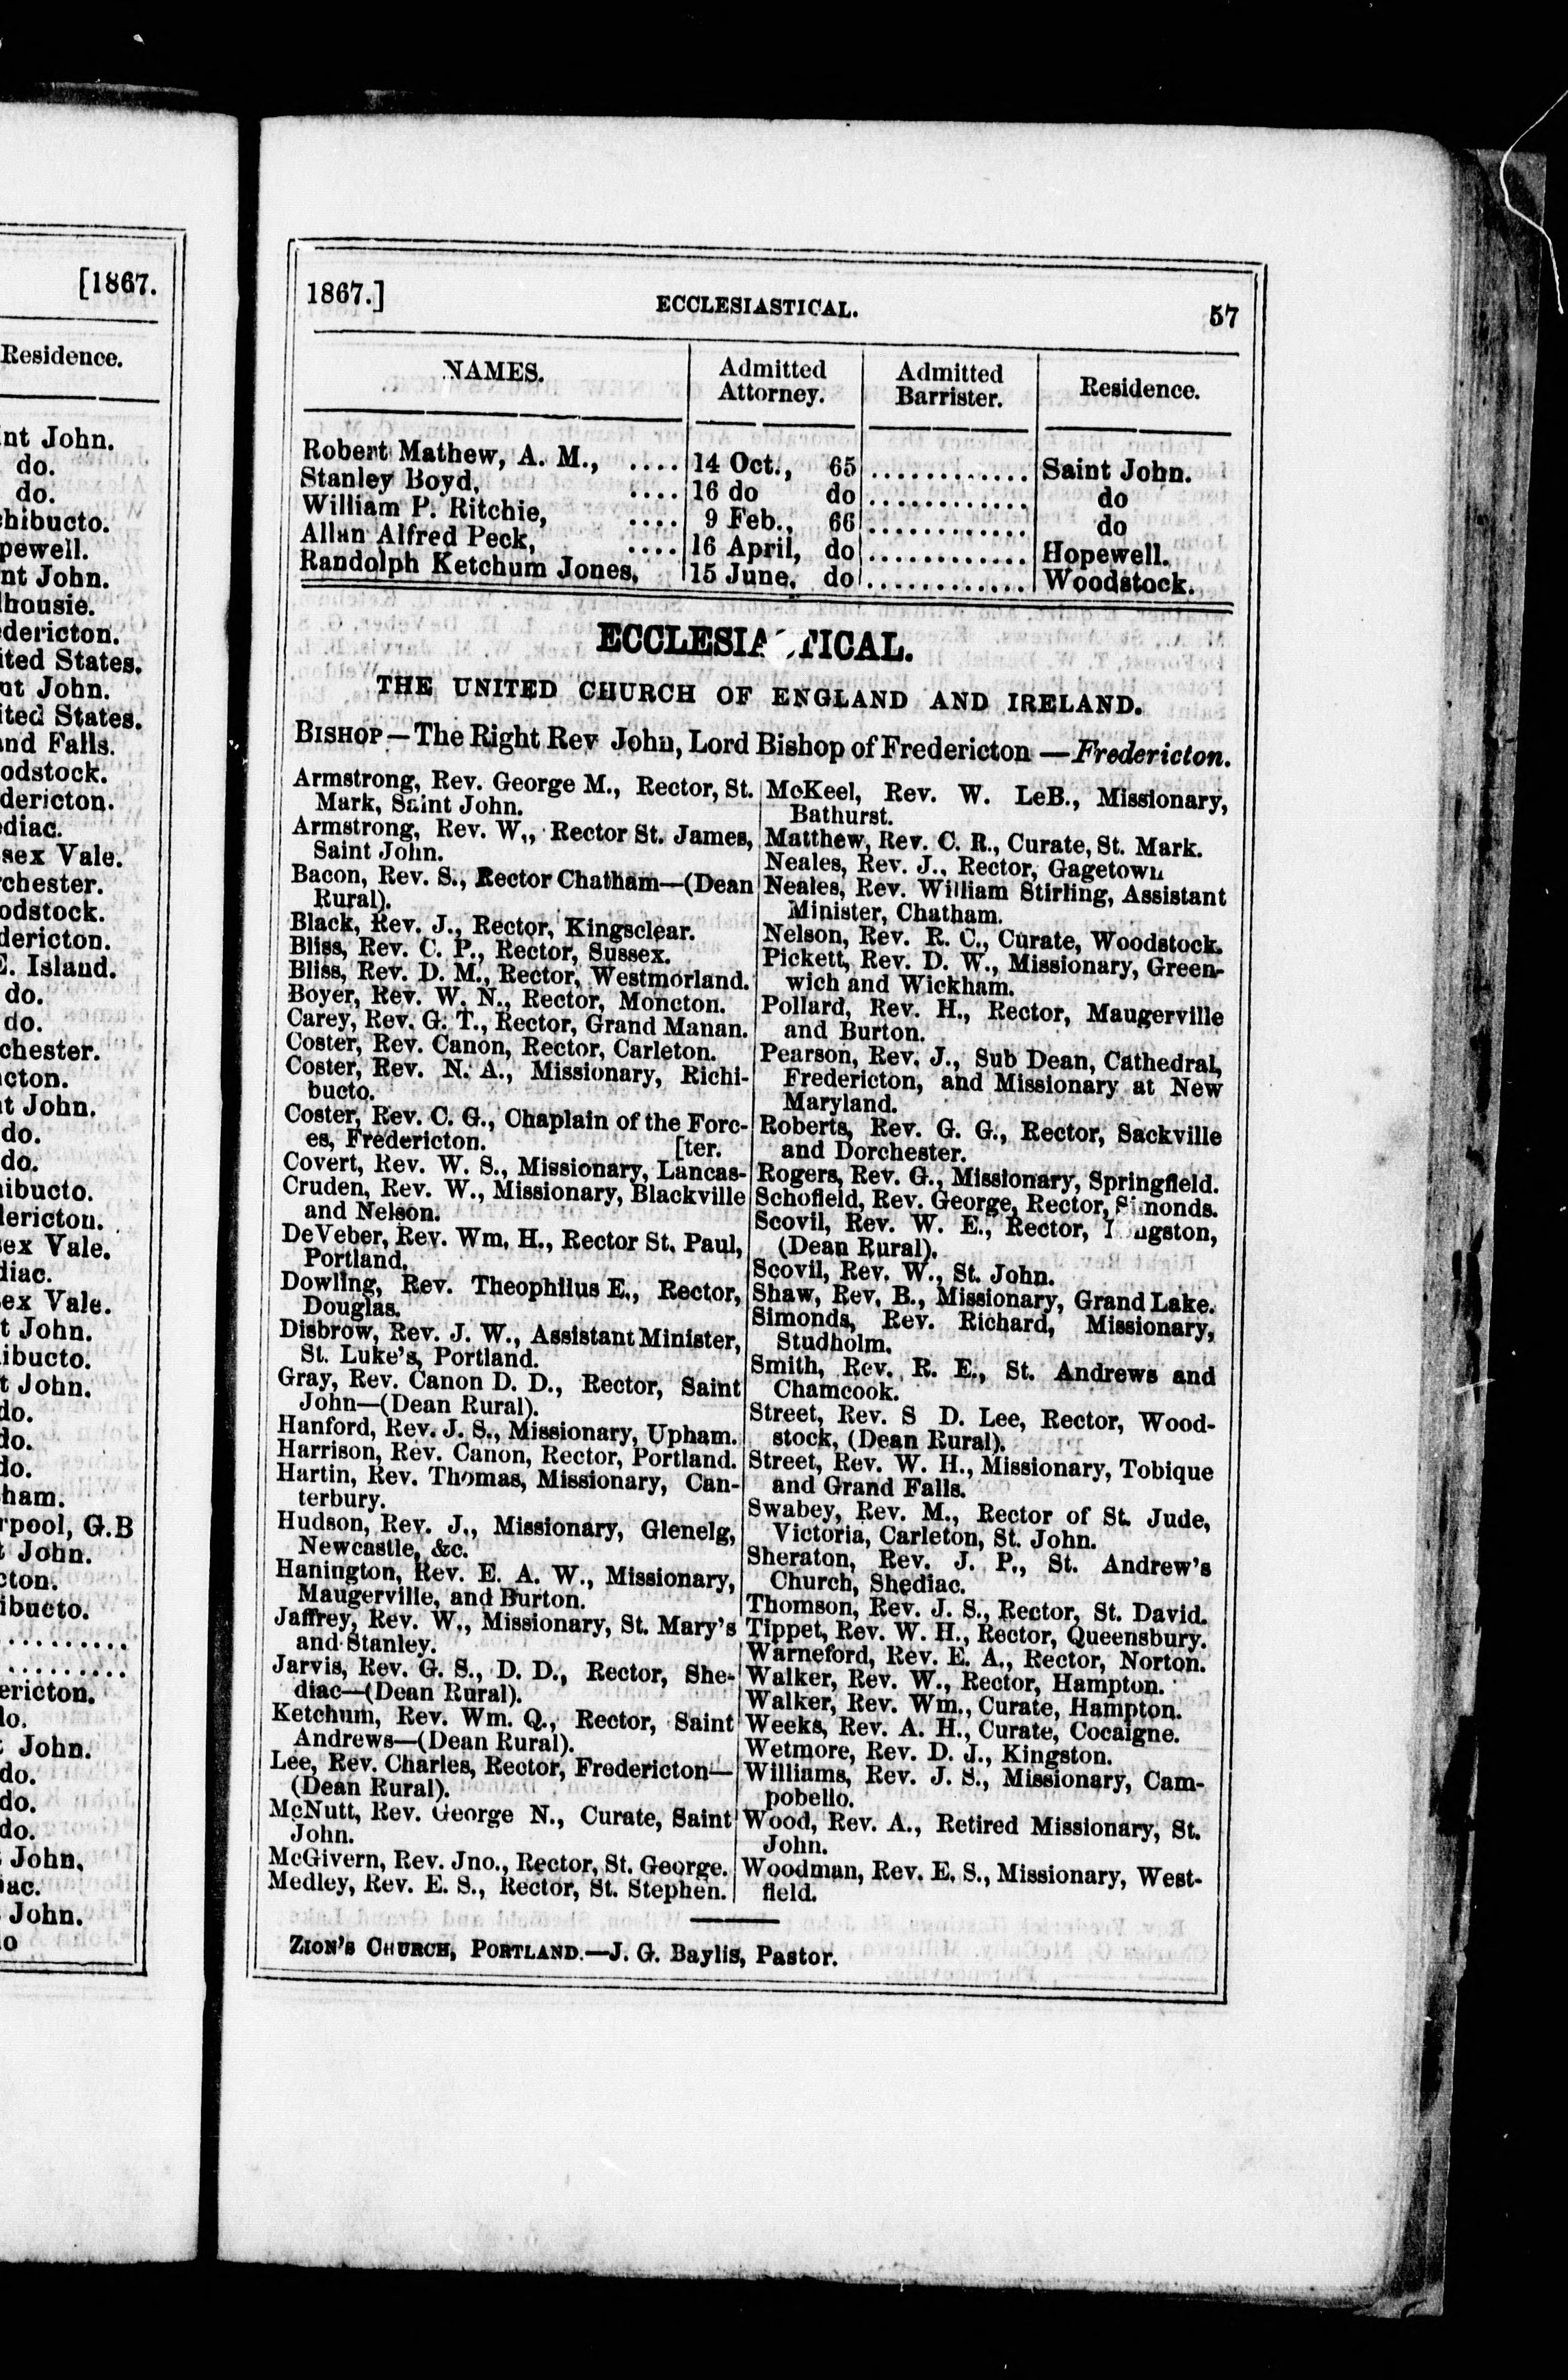 [1867.
Residence.
nt John.
do.
do.
hibucto.
pewell.
nt John.
housie.
dericton.
ited States.
nt John.
ited States.
nd Falls.
odstock.
dericton.
diac.
sex Vale.
chester.
odstock.
dericton.
E. Island.
do.
do.
chester.
cton.
t John.
do.
do.
ibucto.
lericton.
ex Vale.
diac.
ex Vale.
t John.
ibucto.
t John.
do.
do.
do.
ham.
rpool, G.B
t John.
cton.
ibucto.
..........
..........
ericton.
lo.
John.
do.
do.
do.
John.
ac.
John.
o
1867.] ECCLESIASTICAL. 57
NAMES. Admitted Attorney. Admitted Barrister. Residence.
Robert Mathew, A. M., .... 14 Oct., 65 ............ Saint John.
Stanley Boyd, .... 16 do do ............ do
William P. Ritchie, .... 9 Feb., 66 ............ do
Allan Alfred Peck, .... 16 April, do ............ Hopewell.
Randolph Ketchum Jones, 15 June, do ............ Woodstock.
ECCLESIA TICAL.
THE UNITED CHURCH OF ENGLAND AND IRELAND.
BISHOP—The Right Rev John, Lord Bishop of Fredericton—Fredericton.
Armstrong, Rev. George M., Rector, St.
Mark, Saint John.
Armstrong, Rev. W., Rector St. James,
Saint John.
Bacon, Rev. S., Rector Chatham—(Dean
Rural).
Black, Rev. J., Rector, Kingsclear.
Bliss, Rev. C. P., Rector, Sussex.
Bliss, Rev. D. M., Rector, Westmorland.
Boyer, Rev. W. N., Rector, Moncton.
Carey, Rev. G. T., Rector, Grand Manan.
Coster, Rev. Canon, Rector, Carleton.
Coster, Rev. N. A., Missionary, Richi-
bucto.
Coster, Rev. C. G., Chaplain of the Forc-
es, Fredericton. [ter.
Covert, Rev. W. S., Missionary, Lancas-
Cruden, Rev. W., Missionary, Blackville
and Nelson.
DeVeber, Rev. Wm. H., Rector St. Paul,
Portland.
Dowling, Rev. Theophilus E., Rector,
Douglas.
Disbrow, Rev. J. W., Assistant Minister,
St. Luke's, Portland.
Gray, Rev. Canon D. D., Rector, Saint
John—(Dean Rural).
Hanford, Rev. J. S., Missionary, Upham.
Harrison, Rev. Canon, Rector, Portland.
Hartin, Rev. Thomas, Missionary, Can-
terbury.
Hudson, Rev. J., Missionary, Glenelg,
Newcastle, &c.
Hanington, Rev. E. A. W., Missionary,
Maugerville, and Burton.
Jaffrey, Rev. W., Missionary, St. Mary's
and Stanley.
Jarvis, Rev. G. S., D. D., Rector, She-
diac—(Dean Rural).
Ketchum, Rev. Wm. Q., Rector, Saint
Andrews—(Dean Rural).
Lee, Rev. Charles, Rector, Fredericton—
(Dean Rural).
McNutt, Rev. George N., Curate, Saint
John.
McGivern, Rev. Jno., Rector, St. George.
Medley, Rev. E. S., Rector, St. Stephen.
McKeel, Rev. W. LeB., Missionary,
Bathurst.
Matthew, Rev. C. R., Curate, St. Mark.
Neales, Rev. J., Rector, Gagetown
Neales, Rev. William Stirling, Assistant
Minister, Chatham.
Nelson, Rev. R. C., Curate, Woodstock.
Pickett, Rev. D. W., Missionary, Green-
wich and Wickham.
Pollard, Rev. H., Rector, Maugerville
and Burton.
Pearson, Rev. J., Sub Dean, Cathedral,
Fredericton, and Missionary at New
Maryland.
Roberts, Rev. G. G., Rector, Sackville
and Dorchester.
Rogers, Rev. G., Missionary, Springfield.
Schofield, Rev. George, Rector, Simonds.
Scovil, Rev. W. E., Rector, K ngston,
(Dean Rural).
Scovil, Rev. W., St. John.
Shaw, Rev. B., Missionary, Grand Lake.
Simonds, Rev. Richard, Missionary,
Studholm.
Smith, Rev. R. E., St. Andrews and
Chamcook.
Street, Rev. S D. Lee, Rector, Wood-
stock, (Dean Rural).
Street, Rev. W. H., Missionary, Tobique
and Grand Falls.
Swabey, Rev. M., Rector of St. Jude,
Victoria, Carleton, St. John.
Sheraton, Rev. J. P., St. Andrew's
Church, Shediac.
Thomson, Rev. J. S., Rector, St. David.
Tippet, Rev. W. H., Rector, Queensbury.
Warneford, Rev. E. A., Rector, Norton.
Walker, Rev. W., Rector, Hampton.
Walker, Rev. Wm., Curate, Hampton.
Weeks, Rev. A. H., Curate, Cocaigne.
Wetmore, Rev. D. J., Kingston.
Williams, Rev. J. S., Missionary, Cam-
pobello.
Wood, Rev. A., Retired Missionary, St.
John.
Woodman, Rev. E. S., Missionary, West-
field.
ZION'S CHURCH, PORTLAND.—J. G. Baylis, Pastor.